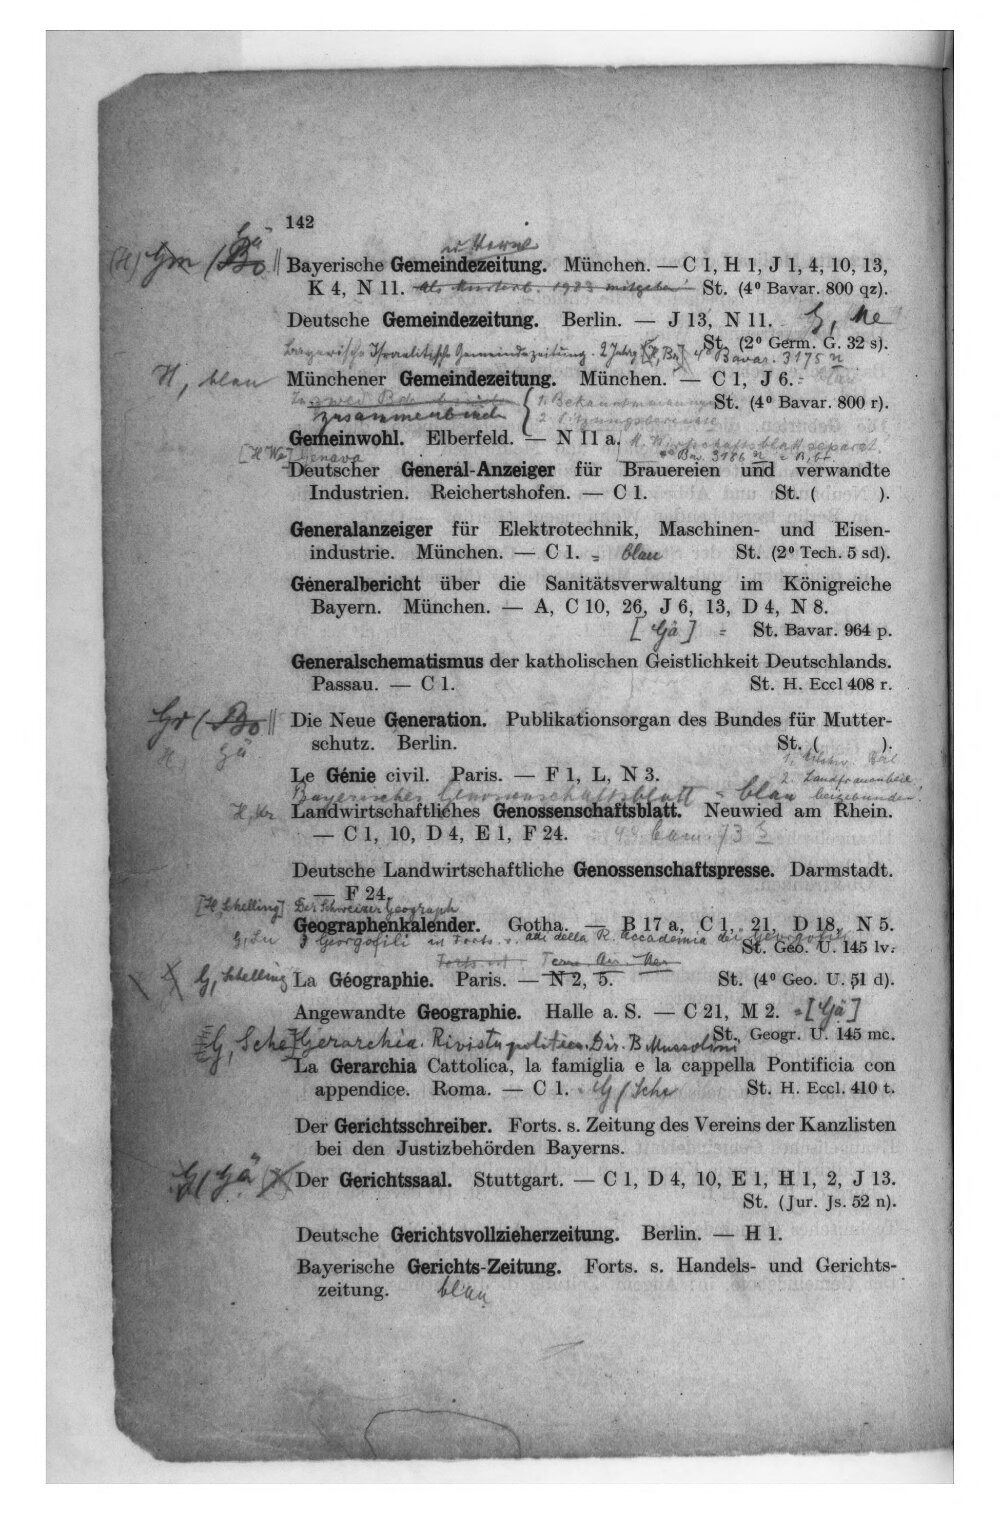 142
Bayerische Gemeindezeitung. München. — C 1, H 1, J 1, 4, 10, 13,
K 4, N 11. St. (4⁰ Bavar. 800 qz).
Deutsche Gemeindezeitung. Berlin. — J 13, N 11. G, Ne
St. (2⁰ Germ. G. 32 s).
Bayerische Israelitische Gemeindezeitung. 4⁰ Bavar. 3175 n
H, blau Münchener Gemeindezeitung. München. — C 1, J 6. = blau
St. (4⁰ Bavar. 800 r).
zusammenbinden
Gemeinwohl. Elberfeld. — N 11 a.
Deutscher General-Anzeiger für Brauereien und verwandte
Industrien. Reichertshofen. — C 1. St. ( ).
Generalanzeiger für Elektrotechnik, Maschinen- und Eisen-
industrie. München. — C 1. = blau St. (2⁰ Tech. 5 sd).
Generalbericht über die Sanitätsverwaltung im Königreiche
Bayern. München. — A, C 10, 26, J 6, 13, D 4, N 8.
[Gä] = St. Bavar. 964 p.
Generalschematismus der katholischen Geistlichkeit Deutschlands.
Passau. — C 1. St. H. Eccl 408 r.
Die Neue Generation. Publikationsorgan des Bundes für Mutter-
schutz. Berlin. St. ( ).
H, Gä
Le Génie civil. Paris. — F 1, L, N 3.
2. Landfrauenbeil
beigebunden!
Bayerisches Genossenschaftsblatt = blau
Landwirtschaftliches Genossenschaftsblatt. Neuwied am Rhein.
— C 1, 10, D 4, E 1, F 24.
Deutsche Landwirtschaftliche Genossenschaftspresse. Darmstadt.
— F 24.
[H, Schelling] Der Schweizer Geograph
Geographenkalender. Gotha. — B 17 a, C 1, 21, D 18, N 5.
I Georgofili in Forts. v. Atti della R. Accademia dei Georgofili
St. Geo. U. 145 lv.
G, Schelling La Géographie. Paris. — N 2, 5. St. (4⁰ Geo. U. 51 d).
Angewandte Geographie. Halle a. S. — C 21, M 2. = [Gä]
St. Geogr. U. 145 mc.
G, Sche Gerarchia. Rivista politica. Dir. B Mussolini
La Gerarchia Cattolica, la famiglia e la cappella Pontificia con
appendice. Roma. — C 1. G / Sche St. H. Eccl. 410 t.
Der Gerichtsschreiber. Forts. s. Zeitung des Vereins der Kanzlisten
bei den Justizbehörden Bayerns.
Der Gerichtssaal. Stuttgart. — C 1, D 4, 10, E 1, H 1, 2, J 13.
St. (Jur. Js. 52 n).
Deutsche Gerichtsvollzieherzeitung. Berlin. — H 1.
Bayerische Gerichts-Zeitung. Forts. s. Handels- und Gerichts-
zeitung. blau